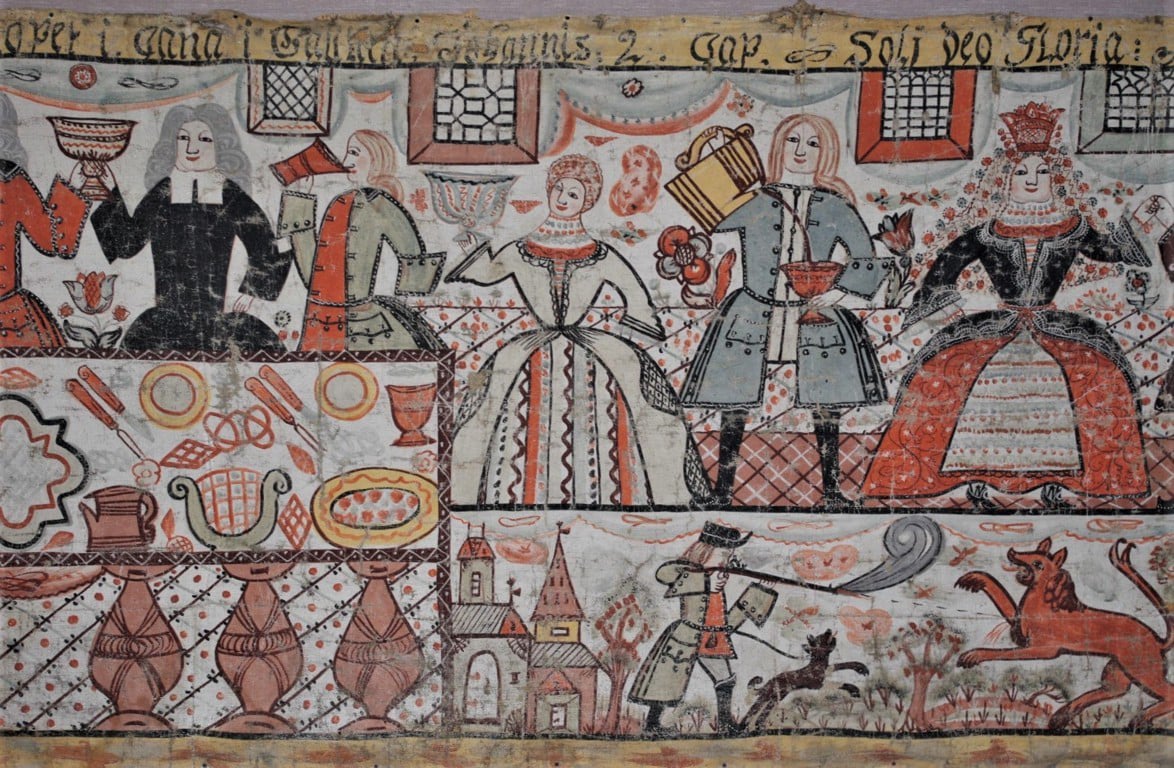 över i Cana i Galilea. Johannis. 2. Cap. Soli Deo Gloria: